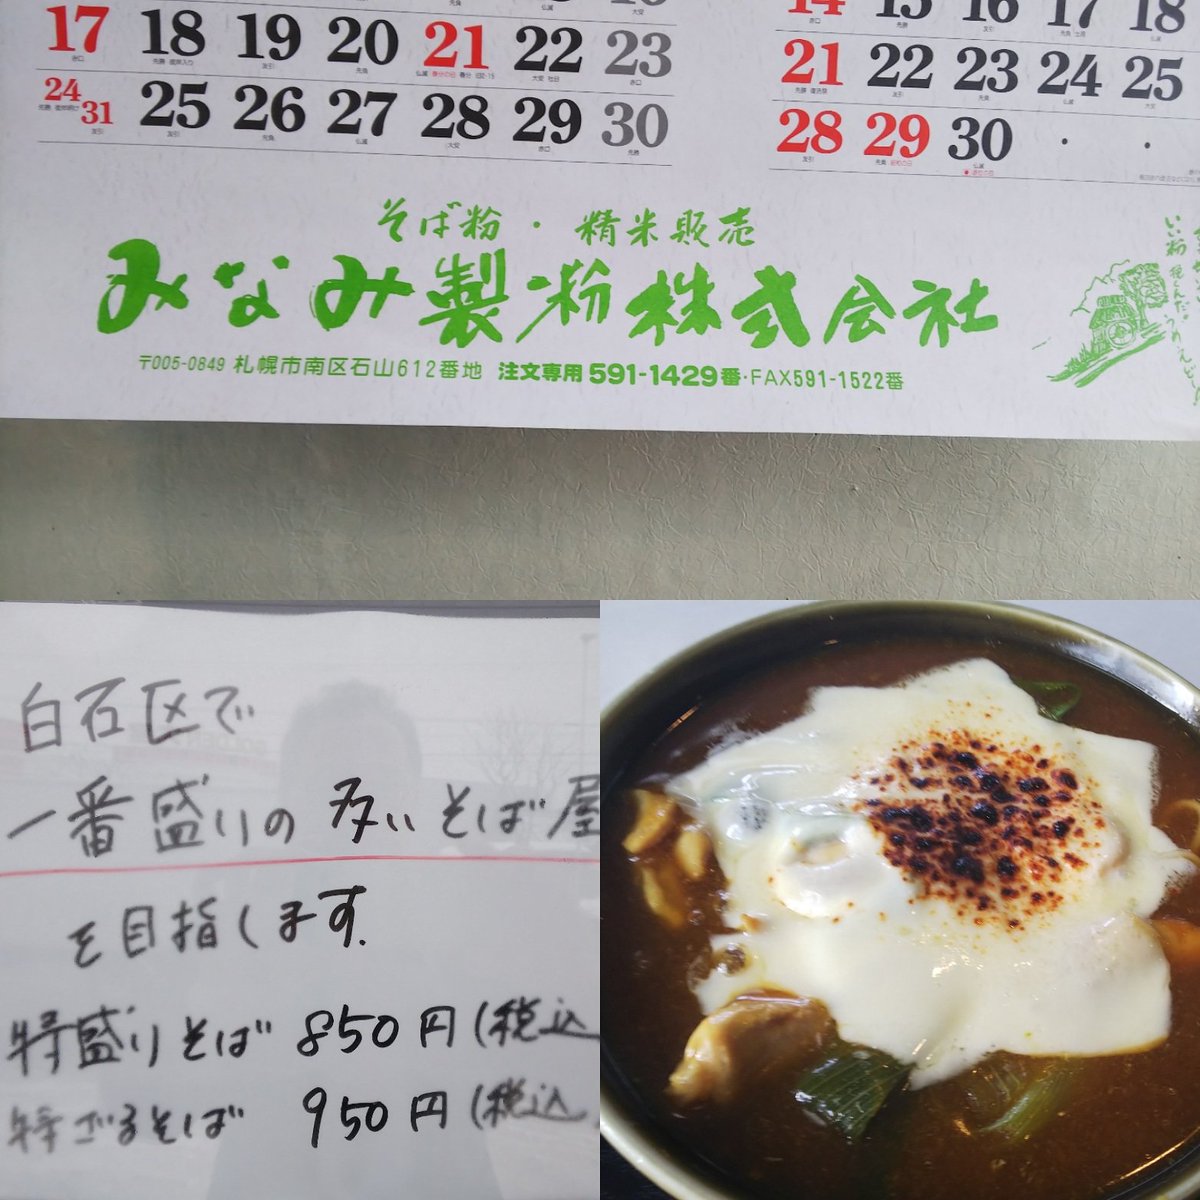 14 15 16 17 18
17 18 19 20 21 22 23
21 22 23 24 25
24 31 25 26 27 28 29 30
28 29 30
そば粉・精米販売
みなみ製粉株式会社
〒005-0849 札幌市南区石山612番地 注文専用591-1429番・FAX591-1522番
白石区で
一番盛りの多いそば屋
を目指します.
特盛りそば 850円(税込
特ざるそば 950円(税込